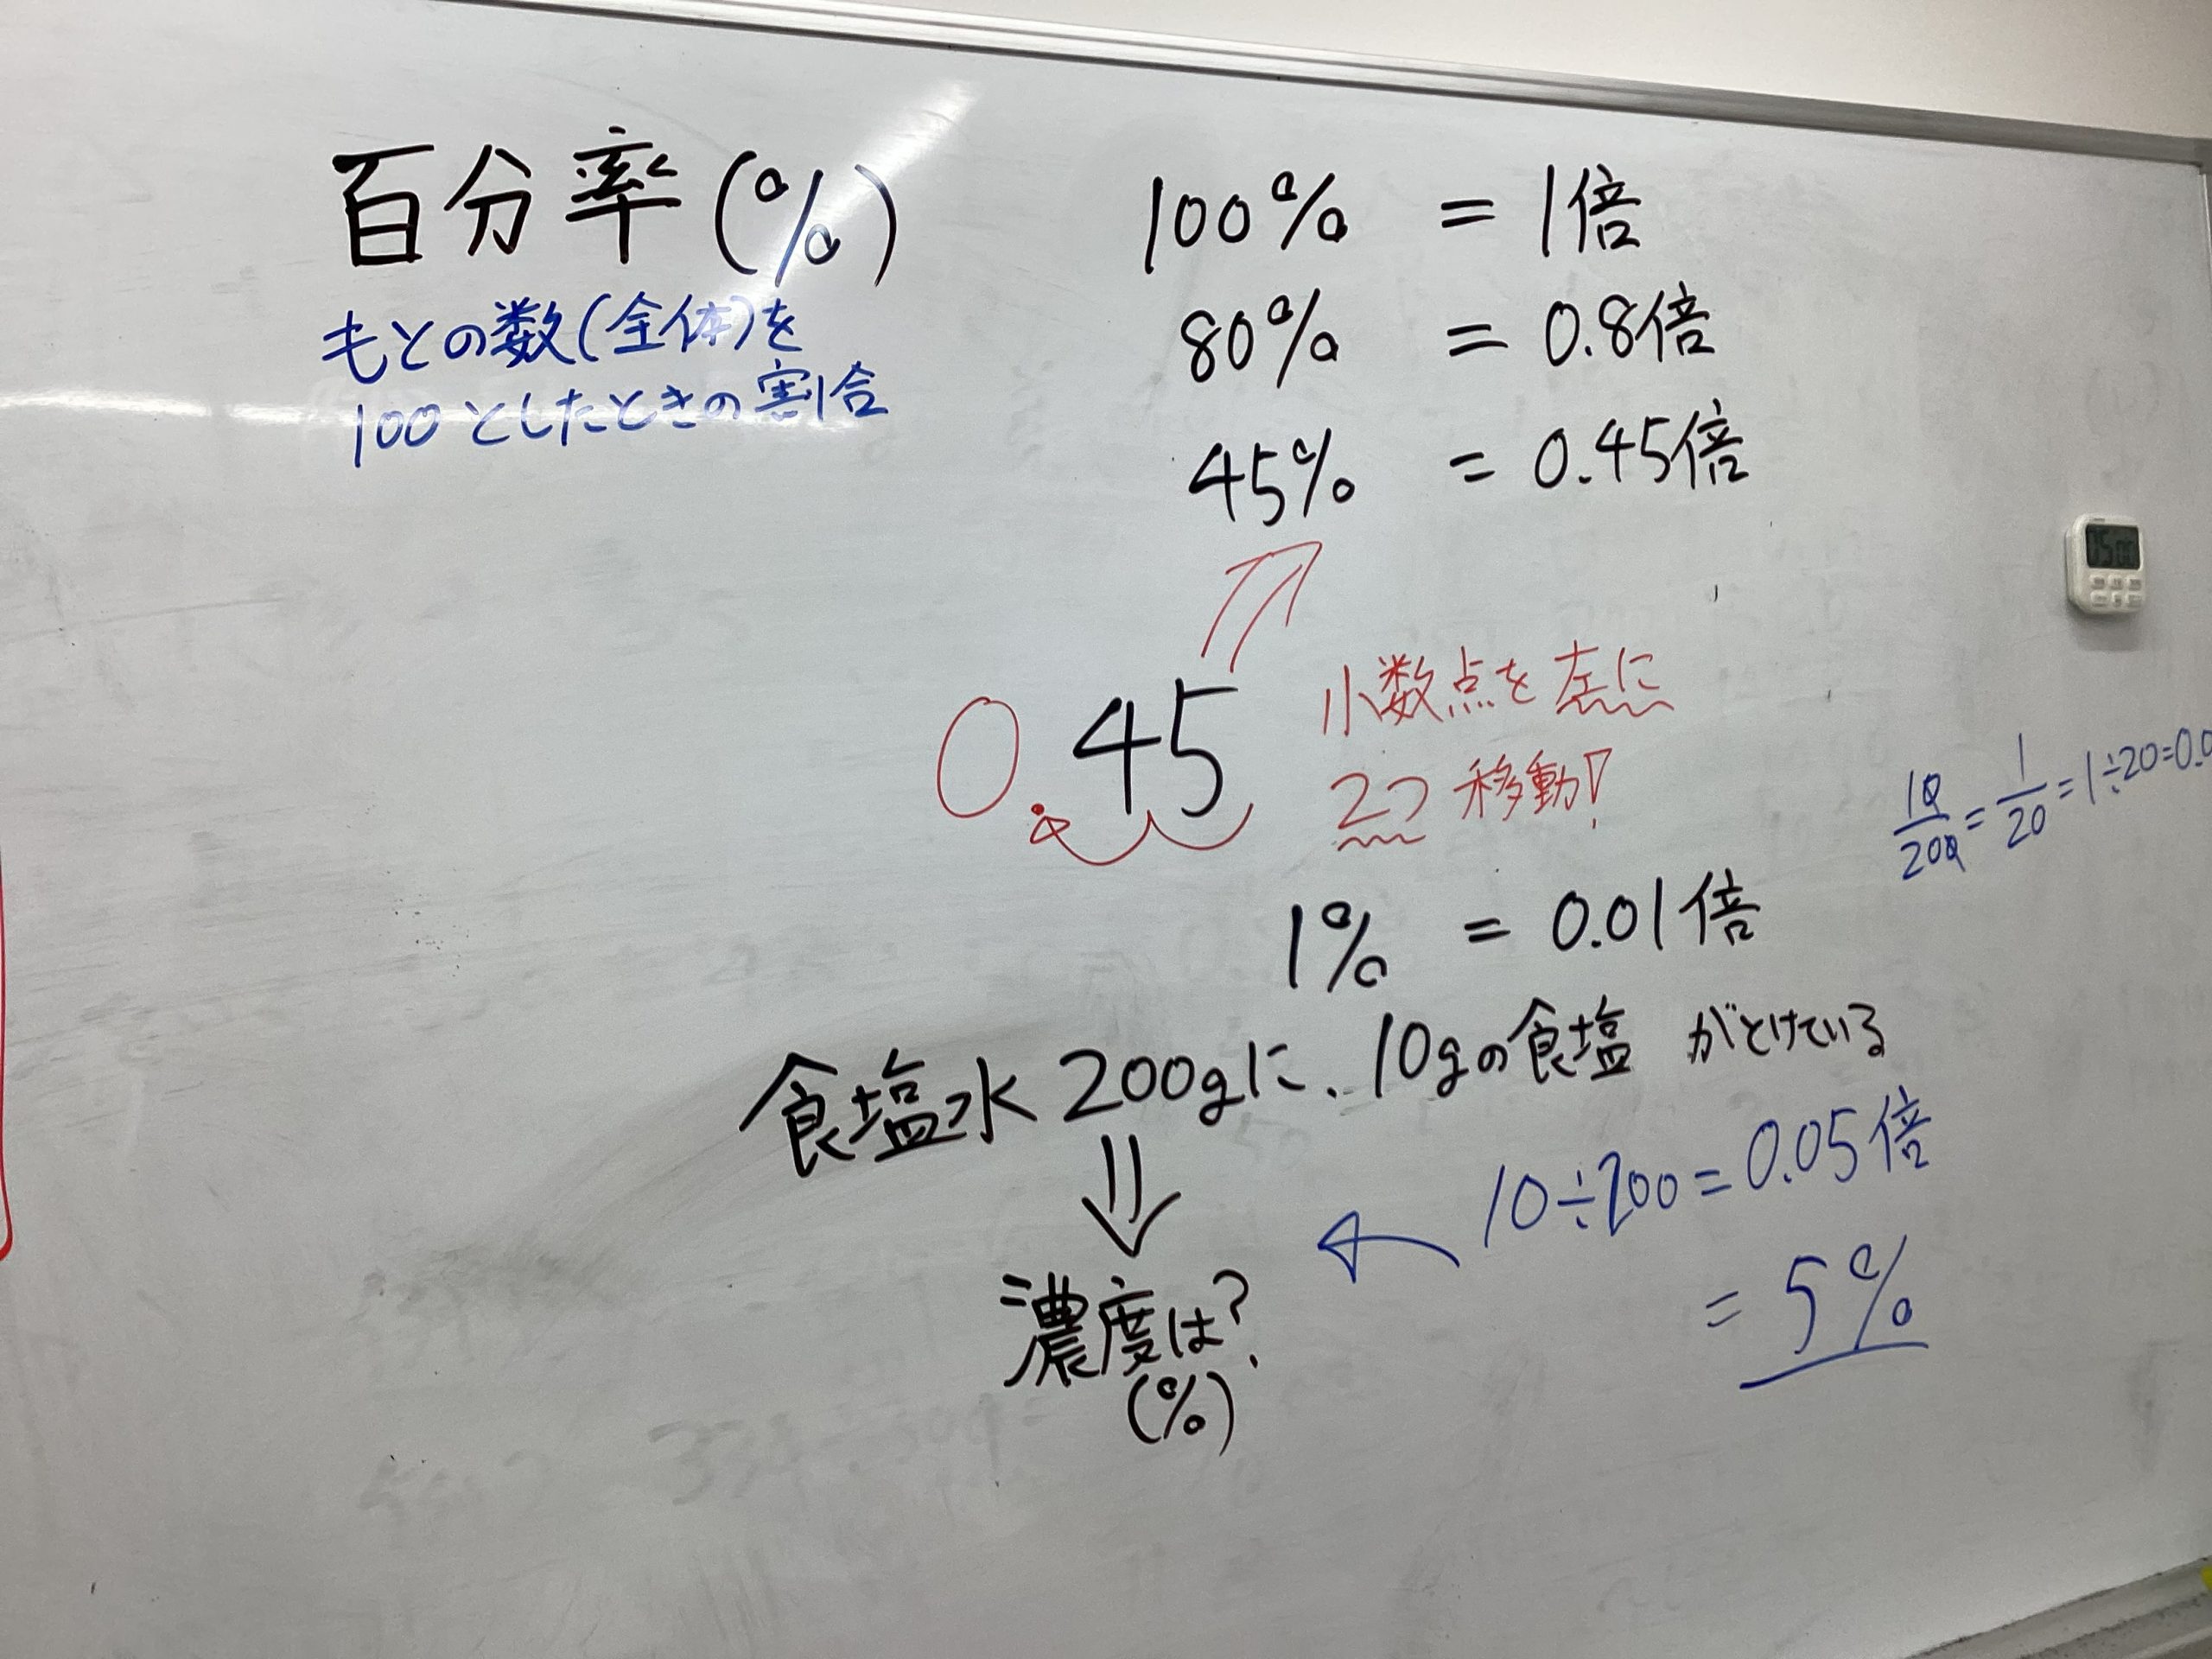 百分率(%)
もとの数(全体)を
100としたときの割合
100% = 1倍
80% = 0.8倍
45% = 0.45倍
0.45
小数点を左に
2つ移動!
10/200 = 1/20 = 1÷20=0.0
1% = 0.01倍
食塩水200gに、10gの食塩がとけている
10÷200=0.05倍
= 5%
濃度は?
(%)